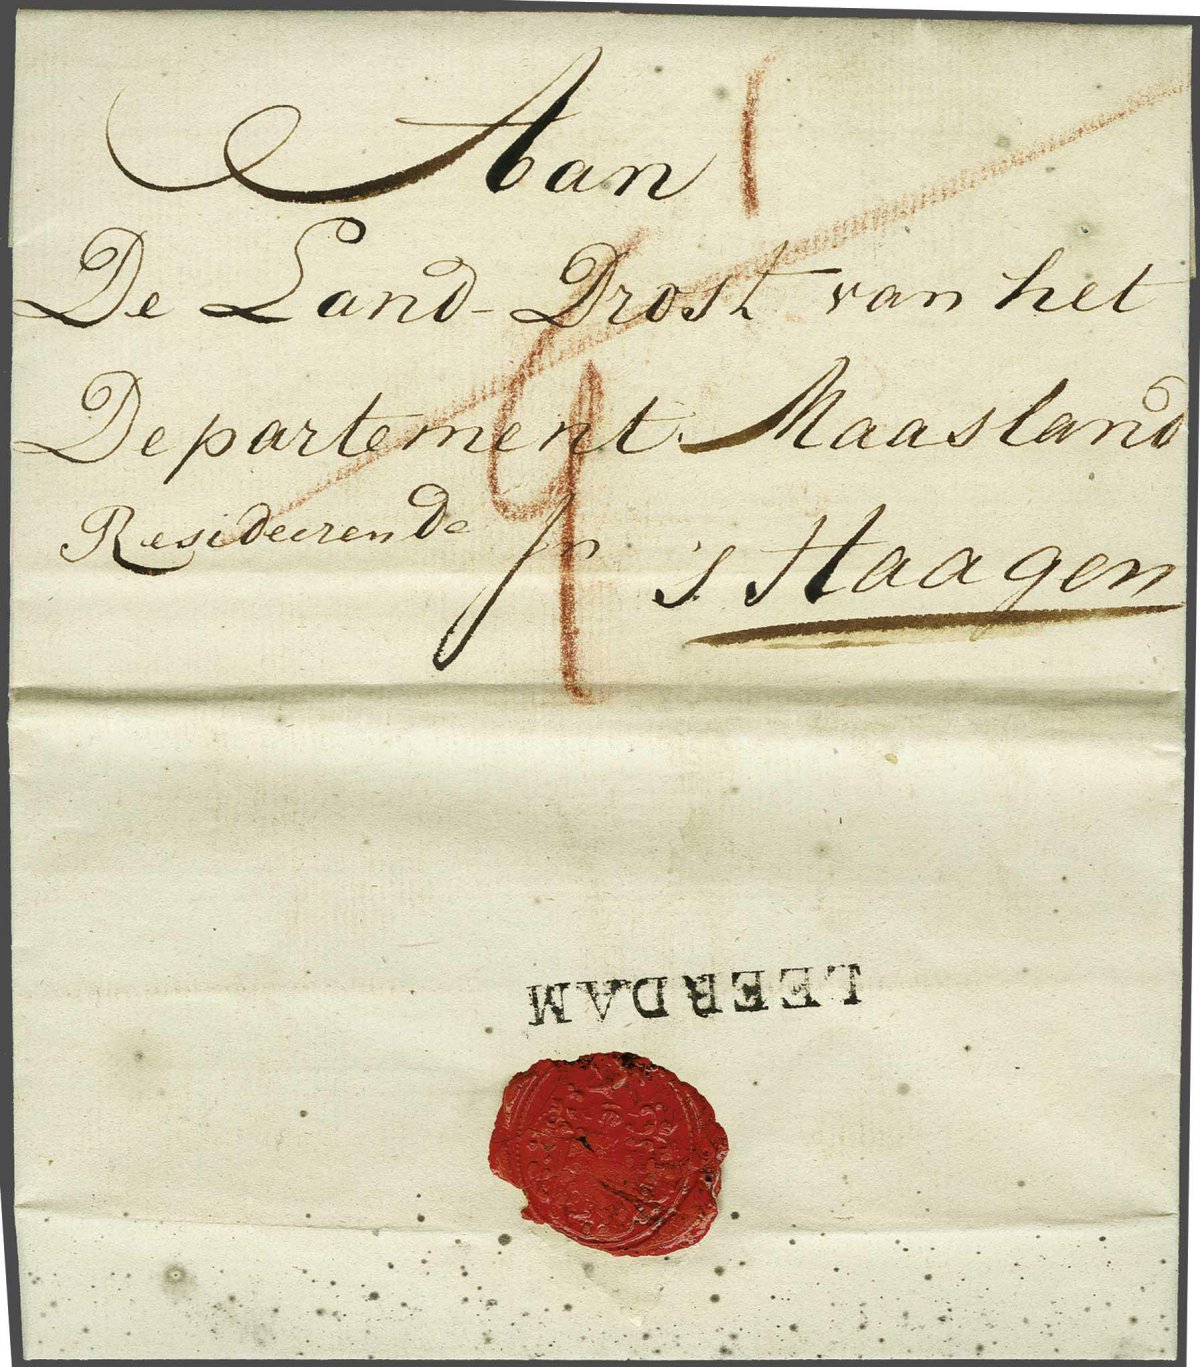 Aan
De Land-Drost van het
Departement Maasland
Resideerende In 's Haagen
LEERDAM